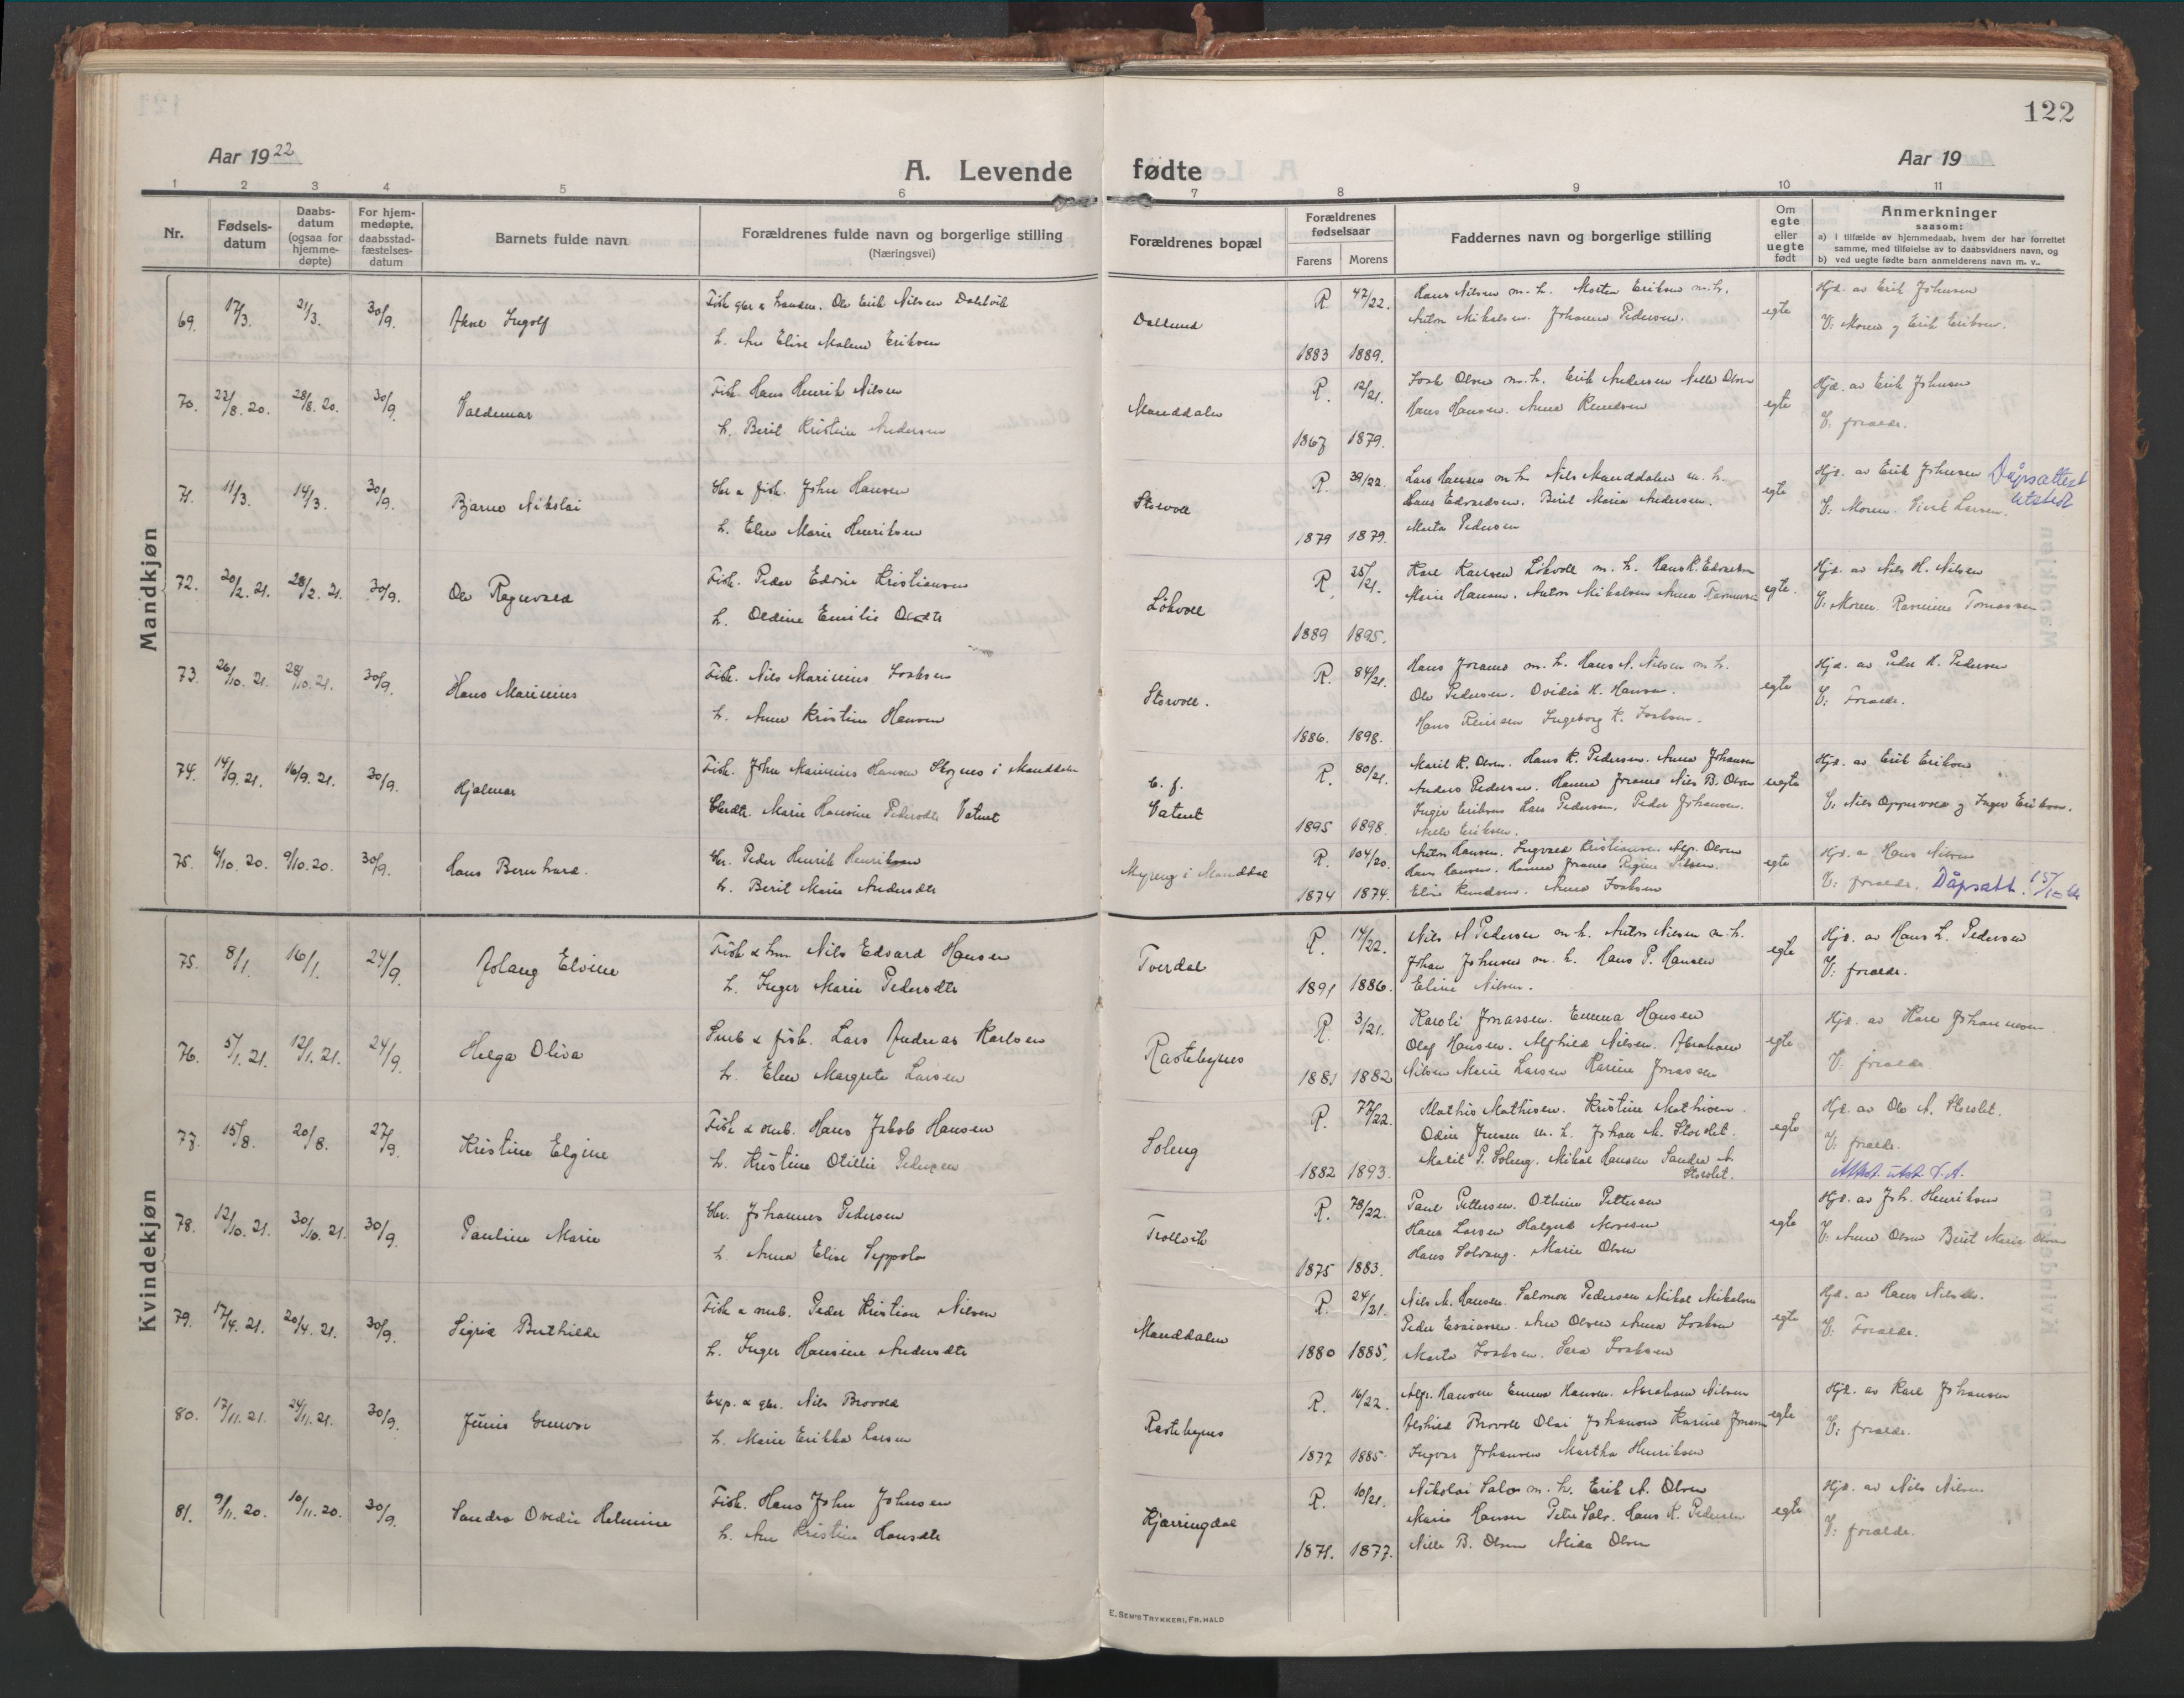 122
Aar 1922
A. Levende fødte
Aar 19
1 2 3 4 5 6 7 8 9 10 11
Nr.
Fødsels-
datum
Daabs-
datum
(ogsaa for
hjemme-
døpte)
For hjem-
medøpte,
daabsstad-
fæstelses-
datum
Barnets fulde navn
Forældrenes fulde navn og borgerlige stilling
(Næringsvei)
Forældrenes bopæl
Forældrenes
fødselsaar
Farens Morens
Faddernes navn og borgerlige stilling
Om
egte
eller
uegte
født
Anmerkninger
saasom:
a) i tilfælde av hjemmedaab, hvem der har forrettet
samme, med tilføielse av to daabsvidners navn, og
b) ved uegte fødte barn anmelderens navn m. v..
Mandkjøn
69. 17/3. 21/3. 30/9. Ingolf
Ole Erik Nilsen Dalvik
h. Ane Elise Malene Eriksen
R. 47/22.
1883 1889.
Hans Nilsen m. h. Morten Eriksen m. h.
Anton Mikalsen. Johanne Pedersen.
egte
Hjd. av Erik Johnsen
V: Moren og Erik Eriksen.
70. 22/8. 20. 28/8. 20. 30/9. Valdemar
Fisk. Hans Henrik Nilsen
h. Berit Kristine Andersen
Manddalen
R. 12/21.
1867 1879.
Isak Olsen m. h. Erik Andersen Nille Olsen
Hans Hansen. Anna Knudsen
egte
Hjd. av Erik Johnsen
V. foraldr.
71. 11/3. 14/3. 30/9. Bjarne Nikolai
Gbr a fisk. John Hansen
h. Elen Marie Henriksen
Storvoll
R. 39/22.
1879 1879.
Lars Hansen m h Nils Manddalen m. h.
Hans Edvardsen. Berit Maria Andersen.
Marta Pedersen
egte
Hjd. av Erik Johnsen Dåpsattest
V. Moren. Larsen. utstedt
72. 20/2. 21. 28/2. 21. 30/9. Ole Ragnvald
Fisk. Peder Edvin Kristiansen
h. Oldine Emilie
Løkvoll
R. 25/21.
1889 1895.
Karl Karlsen Løkvoll m. h. Hans K. Edvardsen
Marie Hansen. Anton Mikalsen Anna
egte.
Hjd. av Nils H. Nilsen
V: Moren. Tomassen
73. 26/10. 21. 28/10. 21. 30/9. Hans Marinius
Fisk. Nils Marinius Isaksen
h. Anne Kristine Hansen
Storvoll.
R. 84/21.
1886. 1898.
Hans m. h. Hans N. Nilsen m h.
Ole Pedersen. Ovidia K. Hansen.
Hans Ingeborg K. Isaksen.
egte
Hjd. av Peder K. Pedersen
V: Foraldr.
74. 14/9. 21. 16/9. 21. 30/9. Hjalmar
Fisk. John Marinius Hansen Skognes i Manddalen
Marie Hansine Pedersdtr Vatnet
b. f.
Vatnet
R. 80/21.
1895 1898.
Marit K. Olsen. Hans K. Pedersen. Anna Johansen
Anders Pedersen. Nils B. Olsen
Inger Eriksen Lars Pedersen. Peder Johansen.
Nille Eriksen.
uegte
Hjd. av Erik Eriksen
V. Nils og Inger Eriksen.
75. 6/10. 20. 9/10. 20. 30/9. Hans Bernhard.
Gbr. Peder Henrik Henriksen
h. Berit Marie Andersdtr
Myreng i Manddal
R. 104/20.
1874 1874.
Anton Hansen. Ingvald Kristiansen. Alfr. Olsen
Hans Hansen. Regine
Elen Knudsen. Anna Isaksen
egte
Hjd. a Hans Nilsen
V: foraldr. Dåpsatt. 15/10
Kvindekjøn
75. 8/1. 16/1. 24/9. Aslaug Elvine
Nils Edvard Hansen
h. Inger Marie Pedersdtr
Tverdal
R. 14/22.
1891 1886.
Nils A Pedersen m h. Anton Nilsen m. h.
Johan Johnsen m. h. Hans P. Hansen
Eline Nilsen.
egte
Hjd. av Hans L. Pedersen
V. foraldr.
76. 5/1. 21. 12/1. 21. 24/9. Helga Oliva
Smb & fisk. Lars Andreas Karlsen
h. Elen Margrete Larsen
Rastebynes
R. 3/21.
1881 1882
Karoli Jonassen. Emma Hansen
Olaf Hansen. Alfhild Nilsen. Abraham
Nilsen Marie Larsen Karine Jonassen
egte
Hjd. av Karl Johannesen
V. foraldr.
77. 15/8. 20/8. 27/9. Kristine Elgine
Fisk & smb. Hans Jakob Hansen
h. Kristine Otillie Pedersen
Soleng
R. 77/22.
1882 1893.
Mathis Mathisen. Kristine Mathisen.
Odin Jensen m. h. Johan M. Storslet.
Marit P. Soleng. Mikal Hansen Sandra A.
Storslet.
egte
Hjd. av Ole A. Storslet.
V. foraldr.
Attest utst. S. A.
78. 12/10. 21. 30/10. 21. 30/9. Pauline Marie
Gbr. Johannes Pedersen
h. Anna Elise Seppola
Trollvik
R. 78/22.
1875 1883.
Paul Pettersen. Othine Pettersen
Hans Larsen
Hans Solvang. Marie Olsen
egte
Hjd. av Joh. Henriksen
V. Anne Olsen Berit Marie Olsen
79. 17/4. 21. 20/4. 21. 30/9. Sigrid Buthilde
Fisk a smb. Peder Kristian Nilsen
h. Inger Hansine Andersdtr
Manddalen
R. 24/21.
1880 1885.
Nils M. Hansen. Salomon Pedersen Mikal Mikalsen
Peder Esaiassen. Ane Olsen Anna Isaksen
Marta Isaksen. Sara Isaksen
egte
Hjd. av Hans
V. Foraldr.
80. 17/11. 21. 24/11. 21. 30/9. Junis Gunvor
Exp. & gbr. Nils Brovold
h. Marie Erikka Larsen
Rastebynes
R. 16/22.
1877 1885
Alfr. Hansen Emma Hansen. Abraham Nilsen
Alfhild Brovoll Olai Johansen Karine
Ingvar Johansen Martha Henriksen
egte
Hjd. av Karl Johansen
V: foraldr.
81. 9/11. 20. 10/11. 20. 30/9. Sandra Ovedie Helmine
Fisk. Hans John Johnsen
h. Ane Kristine Hansdtr
Kjerringdal
R. 10/21.
1871. 1877.
Nikolai Salo m. h. Erik A. Olsen
Marie Hansen Hans K. Pedersen
Nille B. Olsen Olsen
egte
Hjd. av Nils Nilsen
V: foraldr.
E. SEM'S TRYKKERI, FR. HALD